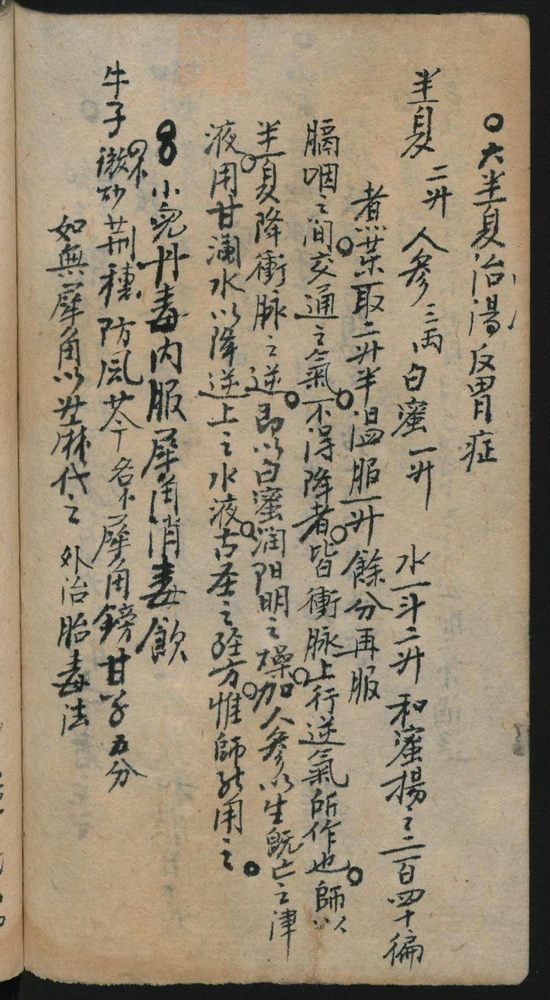 大半夏治湯反胃症
半夏 二升 人參 三両 白蜜 一升 水一斗二升 和蜜揚之二百四十徧
煮藥取二升半溫服一升餘分再服
膈咽之間交通之氣不得降者皆衝脉上行逆氣所作也師以
半夏降衝脉之逆即以白蜜潤陽明之燥加人參以生既亡之津
液用甘瀾水以降逆上之水液古圣之經方惟師能用之
小兒丹毒内服犀角消毒飲
牛子 微炒 荆穗 防風 芩 犀角鎊 甘草 五分
如無犀角以升麻代之 外治胎毒法